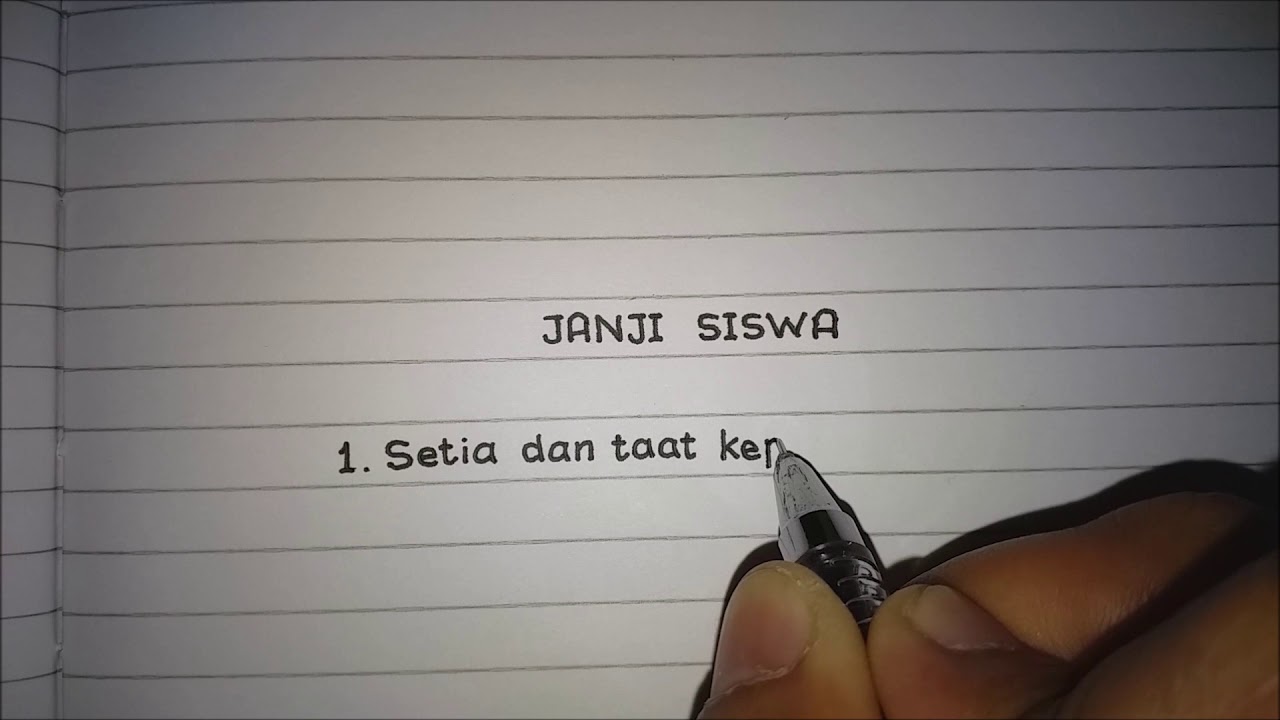 JANJI SISWA
1. Setia dan taat kep